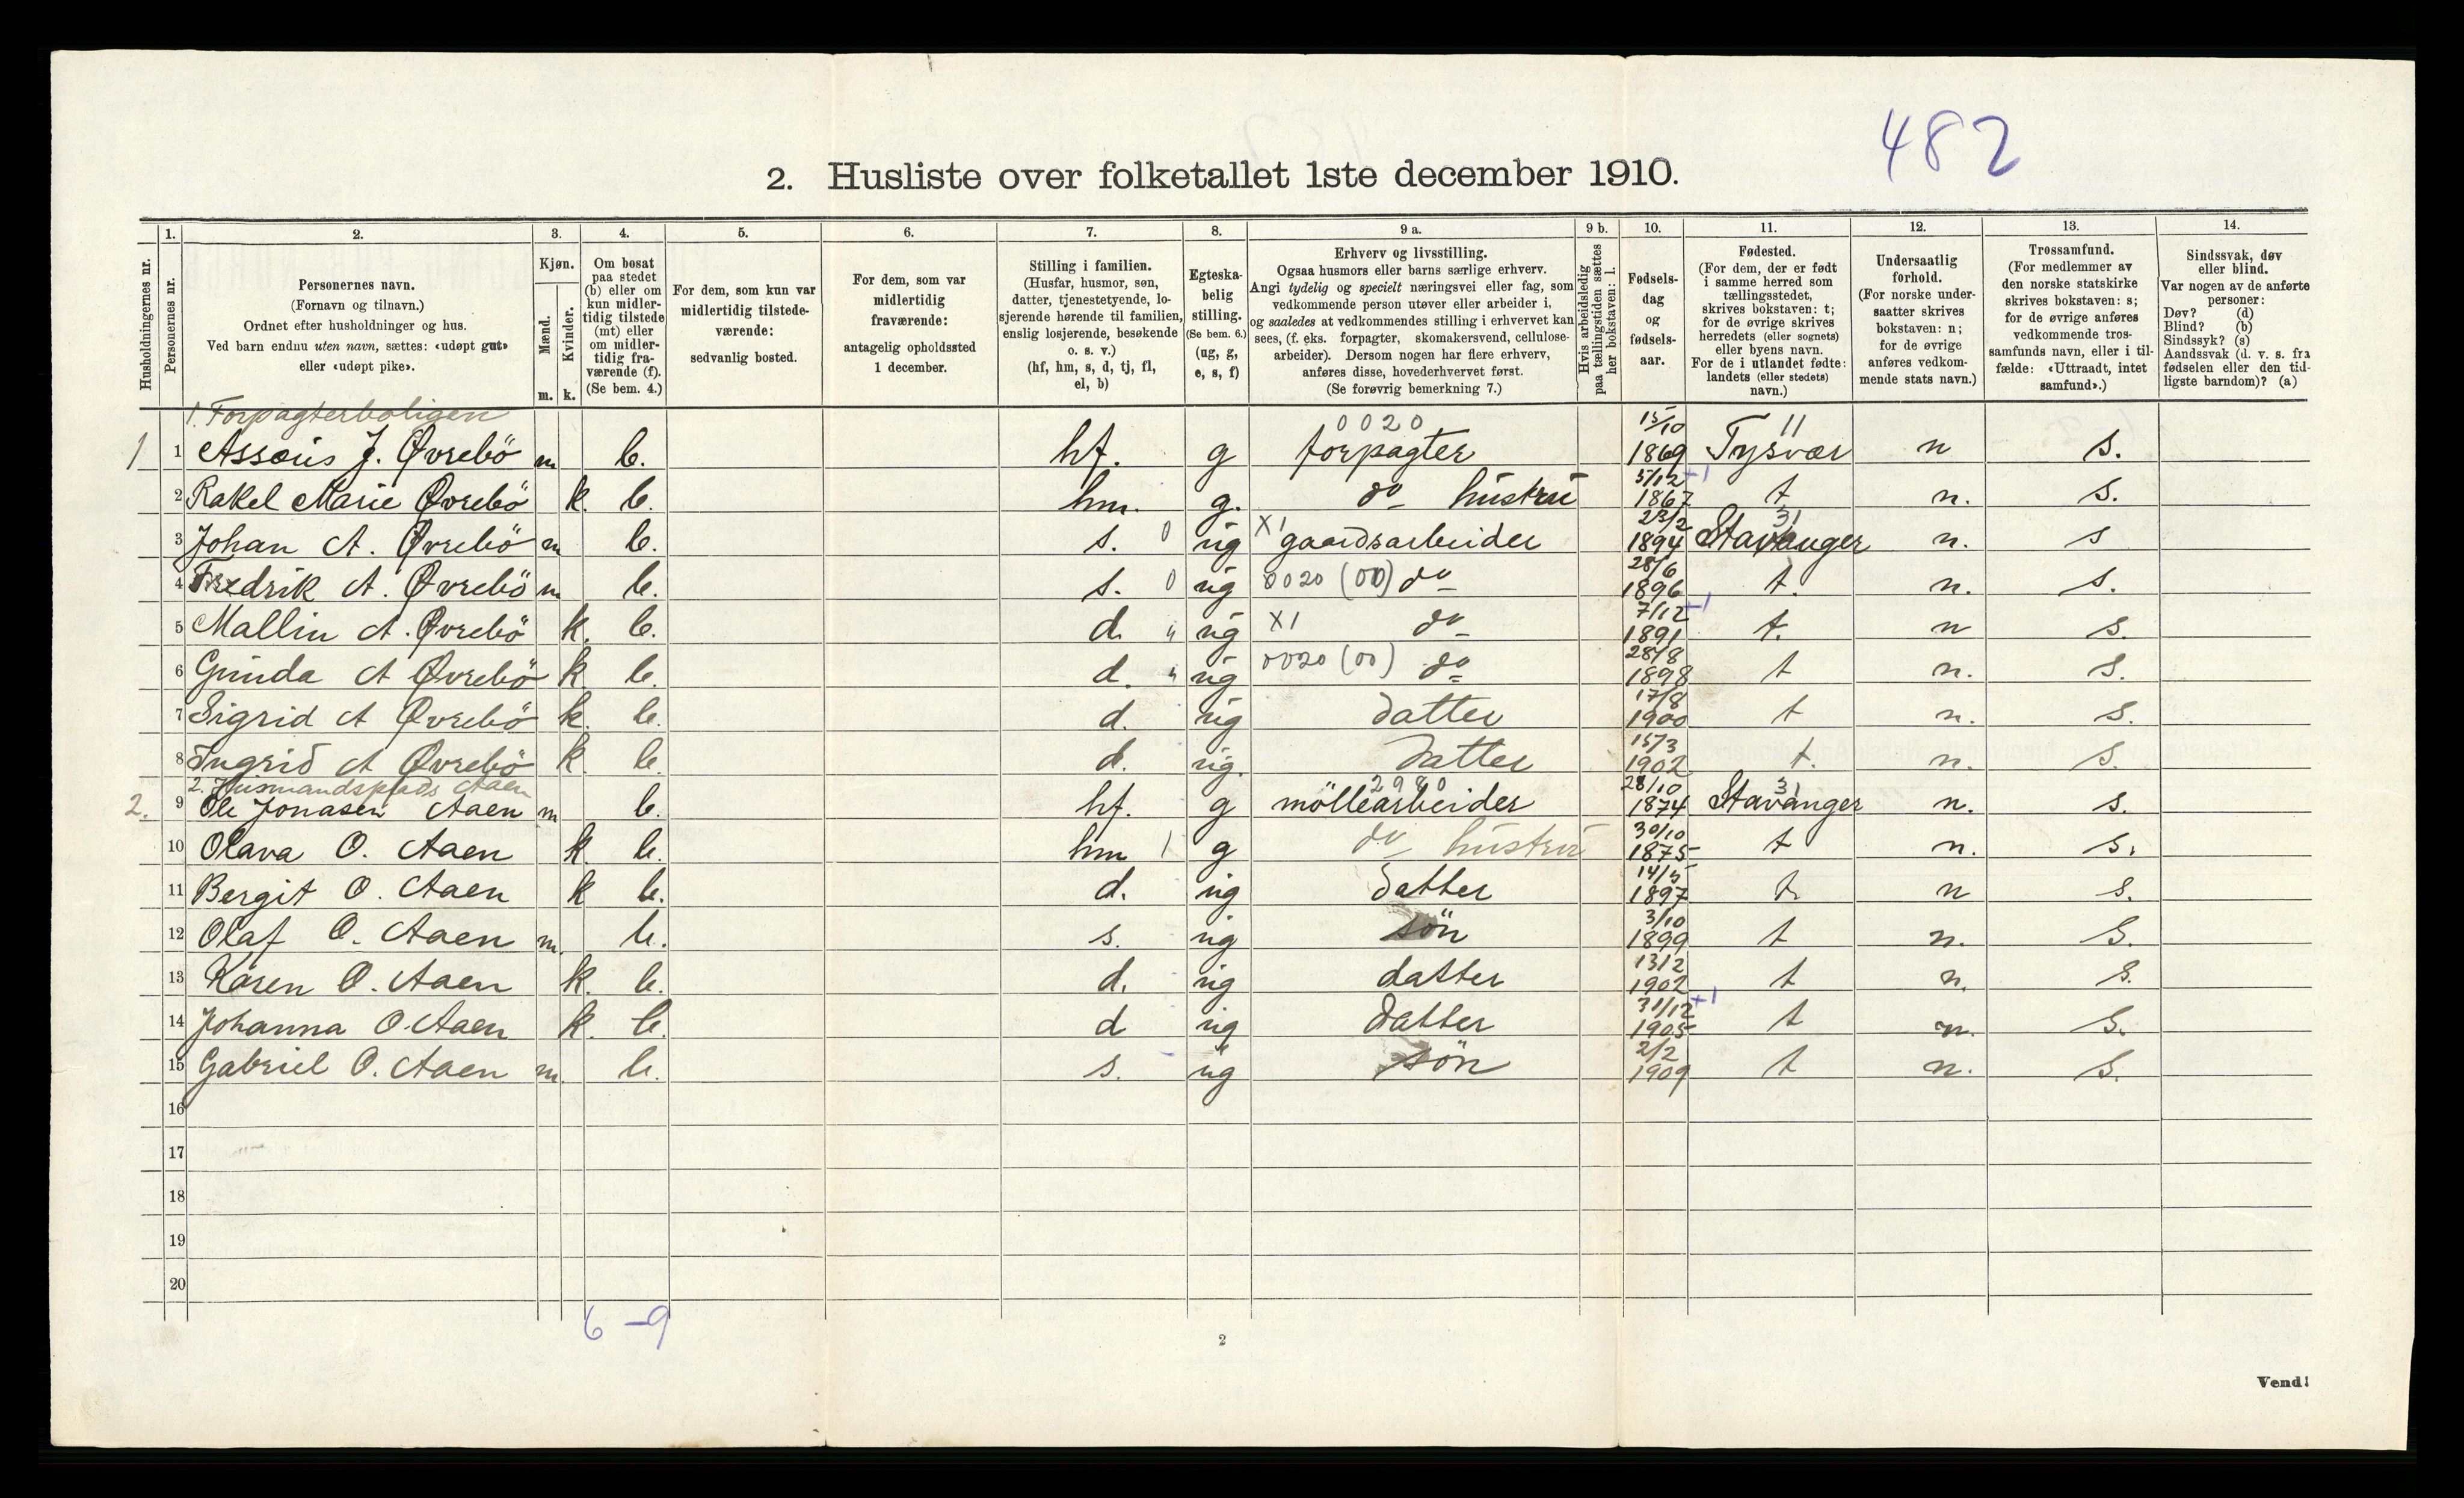 482
2. Husliste over folketallet 1ste december 1910.
Husholdningernes nr.
1.
Personernes nr.
2.
Personernes navn.
(Fornavn og tilnavn.)
Ordnet efter husholdninger og hus.
Ved barn endnu uten navn, sættes: «udøpt gut»
eller «udøpt pike».
3.
Kjøn.
Mænd.
Kvinder.
m. k.
4.
Om bosat
paa stedet
(b) eller om
kun midler-
tidig tilstede
(mt) eller
om midler-
tidig fra-
værende (f).
(Se bem. 4.)
5.
For dem, som kun var
midlertidig tilstede-
værende:
sedvanlig bosted.
6.
For dem, som var
midlertidig
fraværende:
antagelig opholdssted
1 december.
7.
Stilling i familien.
(Husfar, husmor, søn,
datter, tjenestetyende, lo-
sjerende hørende til familien,
enslig losjerende, besøkende
o. s. v.)
(hf, hm, s, d, tj, fl,
el, b)
8.
Egteska-
belig
stilling.
(Se bem. 6.)
(ug, g,
e, s, f)
9 a.
Erhverv og livsstilling.
Ogsaa husmors eller barns særlige erhverv.
Angi tydelig og specielt næringsvei eller fag, som
vedkommende person utøver eller arbeider i,
og saaledes at vedkommendes stilling i erhvervet kan
sees, (f. eks. forpagter, skomakersvend, cellulose-
arbeider). Dersom nogen har flere erhverv,
anføres disse, hovederhvervet først.
(Se forøvrig bemerkning 7.)
9 b.
Hvis arbeidsledig
paa tællingstiden sættes
her bokstaven: l.
10.
Fødsels-
dag
og
fødsels-
aar.
11.
Fødested.
(For dem, der er født
i samme herred som
tællingsstedet,
skrives bokstaven: t;
for de øvrige skrives
herredets (eller sognets)
eller byens navn.
For de i utlandet fødte:
landets (eller stedets)
navn.)
12.
Undersaatlig
forhold.
(For norske under-
saatter skrives
bokstaven: n;
for de øvrige
anføres vedkom-
mende stats navn.)
13.
Trossamfund.
(For medlemmer av
den norske statskirke
skrives bokstaven: s;
for de øvrige anføres
vedkommende tros-
samfunds navn, eller i til-
fælde: «Uttraadt, intet
samfund».)
14.
Sindssvak, døv
eller blind.
Var nogen av de anførte
personer:
Døv? (d)
Blind? (b)
Sindssyk? (s)
Aandssvak (d. v. s. fra
fødselen eller den tid-
ligste barndom)? (a)
1. Forpagterboligen
1 1 Asseris J. Øvrebö m b. hf. g 0020 forpagter 15/10 1869 Tysvær 11 n s.
2 Rakel Marie Øvrebö k. b. hm. g. do hustru 5/12 +1 1867 t n. s.
3 Johan A. Øvrebö m b. s. 0 ug X1 gaardsarbeider 23/2 1894 Stavanger 31 n. s
4 Fredrik A. Øvrebö m b. s. 0 ug 0020 (00) do 28/6 1896 t. n. s.
5 Mallin A. Øvrebö k. b. d. " ug X1 do 7/12 +1 1891 t. n s.
6 Gunda A Øvrebö k b. d. " ug 0020 (00) do 28/8 1898 t n. s.
7 Sigrid A Øvrebö k. b. d. ug datter 17/8 1900 t n. s.
8 Ingrid A Øvrebö k. b. d. ug. datter 15/3 1902 t. n. s.
2. Husmandsplads Aaen
2. 9 Ole Jonasen Aaen m b. hf. g 2980 möllearbeider 28/10 1874 Stavanger 31 n. s.
10 Olava O. Aaen k. b. hm 1 g do hustru 30/10 1875 t n. s.
11 Bergit O. Aaen k b. d. ug datter 14/5 1897 t n s.
12 Olaf O. Aaen m. b. s. ug sön 3/10 1899 t n. s.
13 Karen O. Aaen k. b. d. ug datter 13/2 1902 t n. s.
14 Johanna O. Aaen k. b. d ug datter 31/12 +1 1905 t n. s.
15 Gabriel O. Aaen m. b. s. ug sön 2/2 1909 t n. s.
16
17
18
19
20
6 – 9
2
Vend!